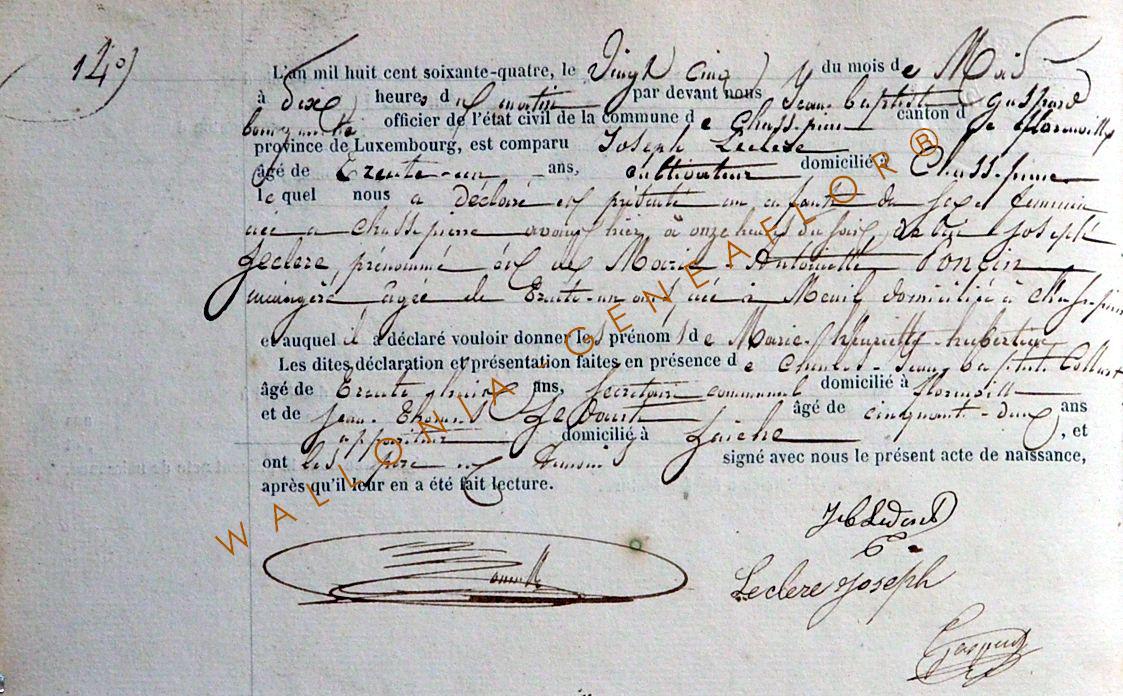 14°)
L'an mil huit cent soixante-quatre, le Vingt cinq du mois de Mai
à dix heures du matin par devant nous Jean baptiste gaspard
officier de l'état civil de la commune de Chassepierre canton de florenville
province de Luxembourg, est comparu Joseph Leclere
âgé de Trente-un ans, cultivateur domicilié à Chassepierre
lequel nous a déclaré et présenté un enfant du sexe feminin
née a chassepierre avant hier, à onze heures du soir, de lui joseph
Leclere, prénommé et de Marie-Antoinette Poncin
menagère agée de Trente-un ans, née à domiciliée à chassepierre
et auquel il a déclaré vouloir donner les prénoms de Marie-henriette-hubertine
Les dites déclaration et présentation faites en présence de Charles-Jean baptiste Collart
âgé de Trente ans, secretaire communal domicilié à florenville
et de Jean-Thomas Ledoust âgé de cinquante-deux ans
appariteur domicilié à Laiche, et
ont les père et temoins signé avec nous le présent acte de naissance,
après qu'il leur en a été fait lecture.
Leclere Joseph
WALLONIA-GENEAFLOR®